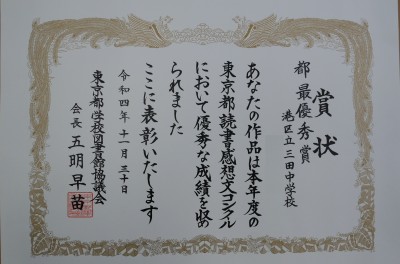 賞状
都 最優秀賞
港区立三田中学校
あなたの作品は本年度の
東京都読書感想文コンクール
において優秀な成績を収め
られました
ここに表彰いたします
令和四年十一月三十日
東京都学校図書館協議会
会長 五明早苗